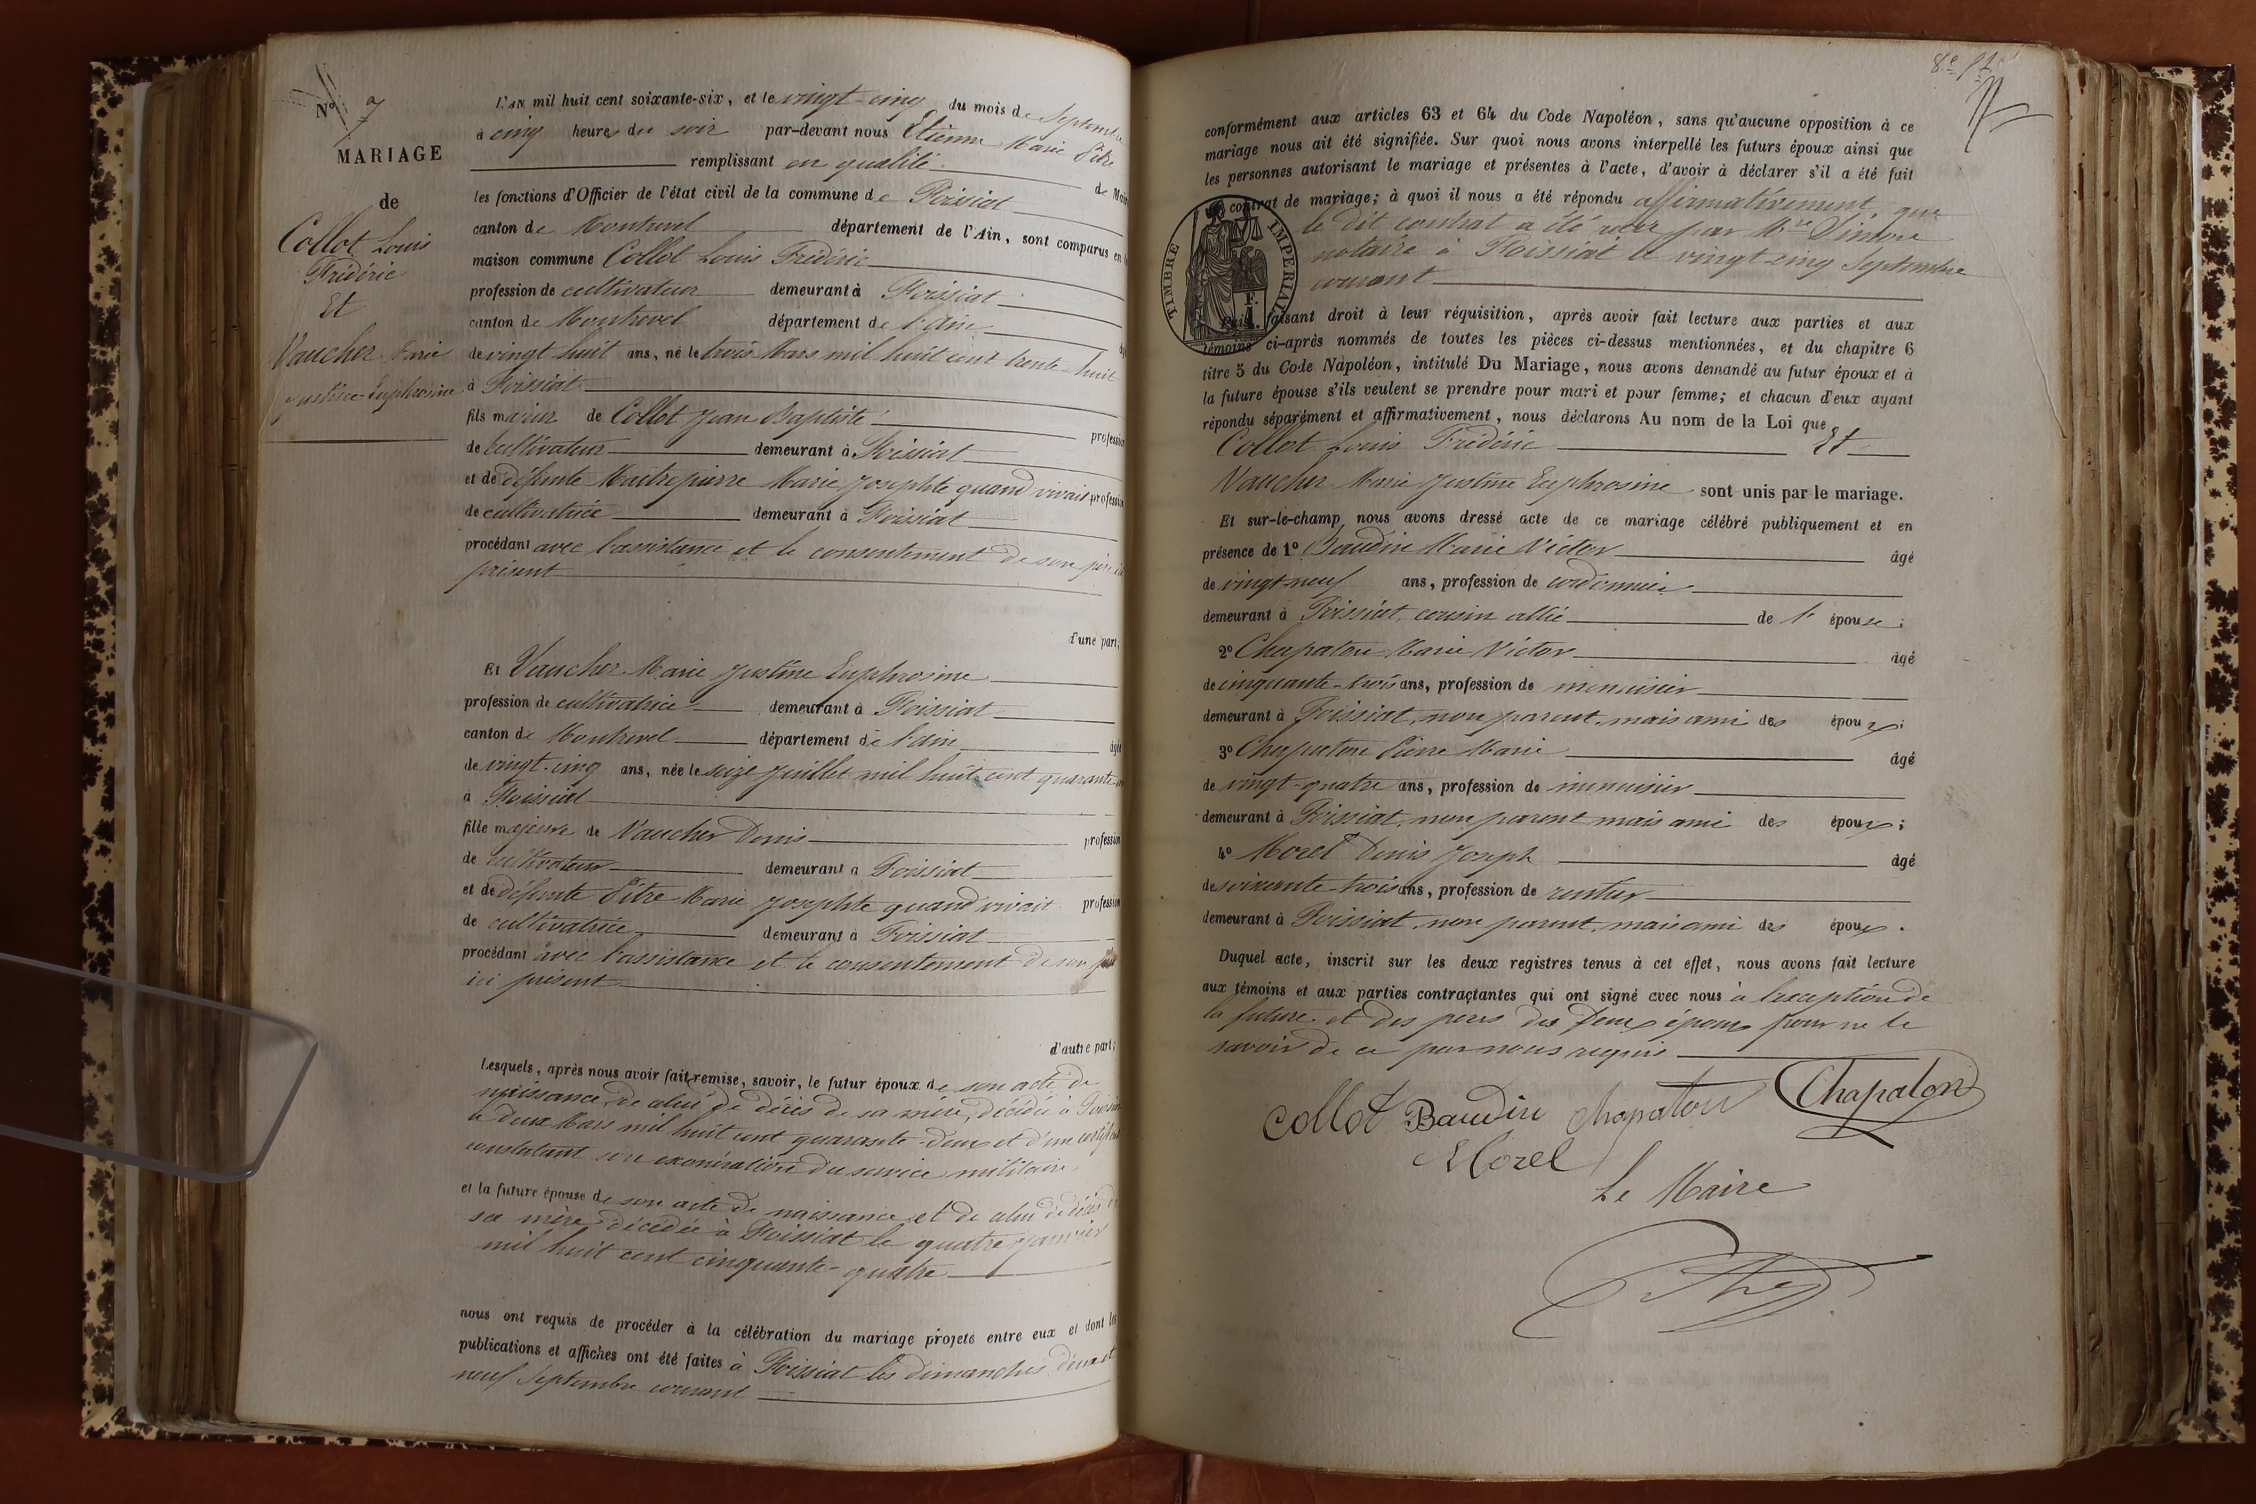 N° 7
MARIAGE
de
Collot Louis
Frédéric
Et
Vaucher Marie
Justine Euphrosine
L'AN mil huit cent soixante-six, et le vingt-cinq du mois de Septembre
à cinq heures du soir par-devant nous Etienne Marie Pitre
remplissant en qualité de Maire
les fonctions d'Officier de l'état civil de la commune de Foissiat
canton de Montrevel département de l'Ain, sont comparus en la
maison commune Collot Louis Frédéric
profession de cultivateur demeurant à Foissiat
canton de Montrevel département de l'Ain âgé
de vingt huit ans, né le trois Mars mil huit cent trente-huit
à Foissiat
fils majeur de Collot Jean Baptiste profession
de cultivateur demeurant à Foissiat
et de défunte Maitrepierre Marie Josephte quand vivait profession
de cultivatrice demeurant à Foissiat
procédant avec l'assistance et le consentement de son père ici
présent
d'une part;
Et Vaucher Marie Justine Euphrosine
profession de cultivatrice demeurant à Foissiat
canton de Montrevel département de l'Ain âgée
de vingt-cinq ans, née le seize Juillet mil huit cent quarante-un
à Foissiat
fille majeure de Vaucher Denis profession
de cultivateur demeurant à Foissiat
et de défunte Pitre Marie Josephte quand vivait profession
de cultivatrice demeurant à Foissiat
procédant avec l'assistance et le consentement de son père
ici présent
d'autre part;
Lesquels, après nous avoir fait remise, savoir, le futur époux de son acte de
naissance, de celui de décès de sa mère, décédée à Foissiat
le deux Mars mil huit cent quarante-deux et d'un certificat
constatant son exonération du service militaire
et la future épouse de son acte de naissance et de celui de décès de
sa mère décédée à Foissiat le quatre Janvier
mil huit cent cinquante-quatre
nous ont requis de procéder à la célébration du mariage projeté entre eux et dont les
publications et affiches ont été faites à Foissiat les dimanches deux et
neuf Septembre courant
conformément aux articles 63 et 64 du Code Napoléon, sans qu'aucune opposition à ce
mariage nous ait été signifiée. Sur quoi nous avons interpellé les futurs époux ainsi que
les personnes autorisant le mariage et présentes à l'acte, d'avoir à déclarer s'il a été fait
un contrat de mariage; à quoi il nous a été répondu affirmativement que
le dit contrat a été reçu par Mre
notaire à Foissiat le vingt-cinq Septembre
courant
TIMBRE IMPERIAL
1 F.
Puis, faisant droit à leur réquisition, après avoir fait lecture aux parties et aux
témoins ci-après nommés de toutes les pièces ci-dessus mentionnées, et du chapitre 6
titre 5 du Code Napoléon, intitulé Du Mariage, nous avons demandé au futur époux et à
la future épouse s'ils veulent se prendre pour mari et pour femme; et chacun d'eux ayant
répondu séparément et affirmativement, nous déclarons Au nom de la Loi que
Collot Louis Frédéric Et
Vaucher Marie Justine Euphrosine sont unis par le mariage.
Et sur-le-champ nous avons dressé acte de ce mariage célébré publiquement et en
présence de 1° Baudin Marie Victor âgé
de vingt neuf ans, profession de cordonnier
demeurant à Foissiat, cousin allié de l' épouse;
2° Chapaton Marie Victor âgé
de cinquante-trois ans, profession de menuisier
demeurant à Foissiat, non parent, mais ami des époux;
3° Chapaton Pierre Marie âgé
de vingt-quatre ans, profession de menuisier
demeurant à Foissiat, non parent mais ami des époux;
4° Morel Denis Joseph âgé
de soixante-trois ans, profession de rentier
demeurant à Foissiat, non parent, mais ami des époux.
Duquel acte, inscrit sur les deux registres tenus à cet effet, nous avons fait lecture
aux témoins et aux parties contractantes qui ont signé avec nous à l'exception de
la future et des pères des deux époux pour ne le
savoir de ce par nous requis
Collot Baudin Chapaton Chapaton
Morel
Le Maire
Pitre